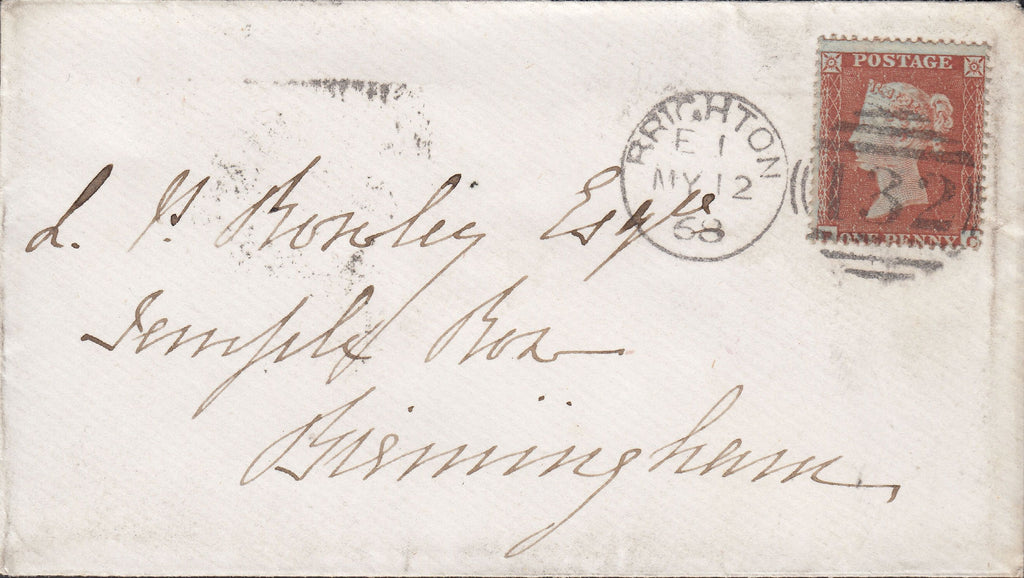 POSTAGE
BRIGHTON
E 1
MY 12
68
132
ONE PENNY
L. P. Rowley Esqre
Temple Row
Birmingham